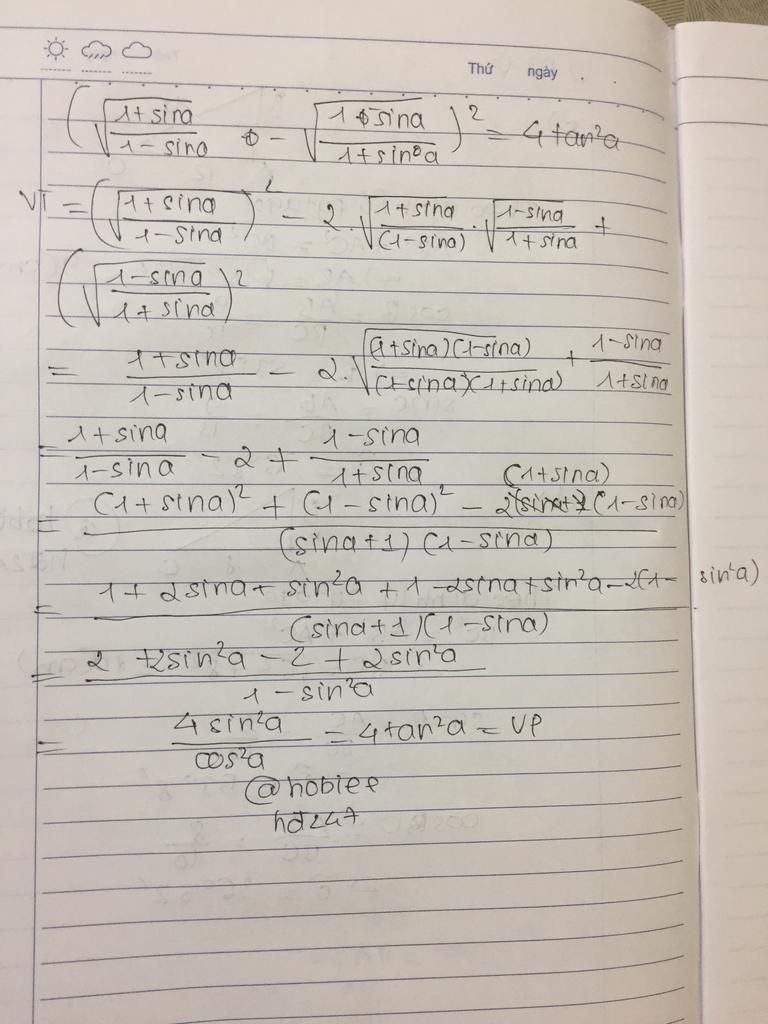 Thứ ngày . .
(√((1+sina)/(1-sina)) - √((1-sina)/(1+sina)))² = 4tan²a
VT = (√((1+sina)/(1-sina)))² - 2.√((1+sina)/(1-sina)).√((1-sina)/(1+sina)) +
(√((1-sina)/(1+sina)))²
= (1+sina)/(1-sina) - 2.√(((1+sina)(1-sina))/((1+sina)(1+sina))) + (1-sina)/(1+sina)
= (1+sina)/(1-sina) - 2 + (1-sina)/(1+sina)
= ((1+sina)² + (1-sina)² - 2(1+sina)(1-sina))/((sina+1)(1-sina))
= (1+2sina+sin²a+1-2sina+sin²a-2(1-sin²a))/((sina+1)(1-sina))
= (2+2sin²a-2+2sin²a)/(1-sin²a)
= (4sin²a)/(cos²a) = 4tan²a = VP
@hobiee
hd247